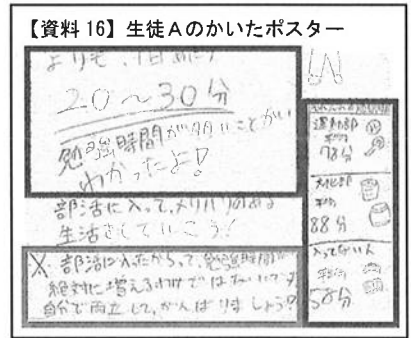 【資料 16】生徒Aのかいたポスター
よりも、1日あたり
20〜30分
勉強時間が多いことが
わかったよ!
部活に入って、メリハリのある
生活をしていこう!
※部活に入ったからって、勉強時間が
絶対に増えるわけではないです
自分で両立して、がんばりましょう?
運動部
平均
78分
文化部
平均
88分
入ってない人
平均
58分